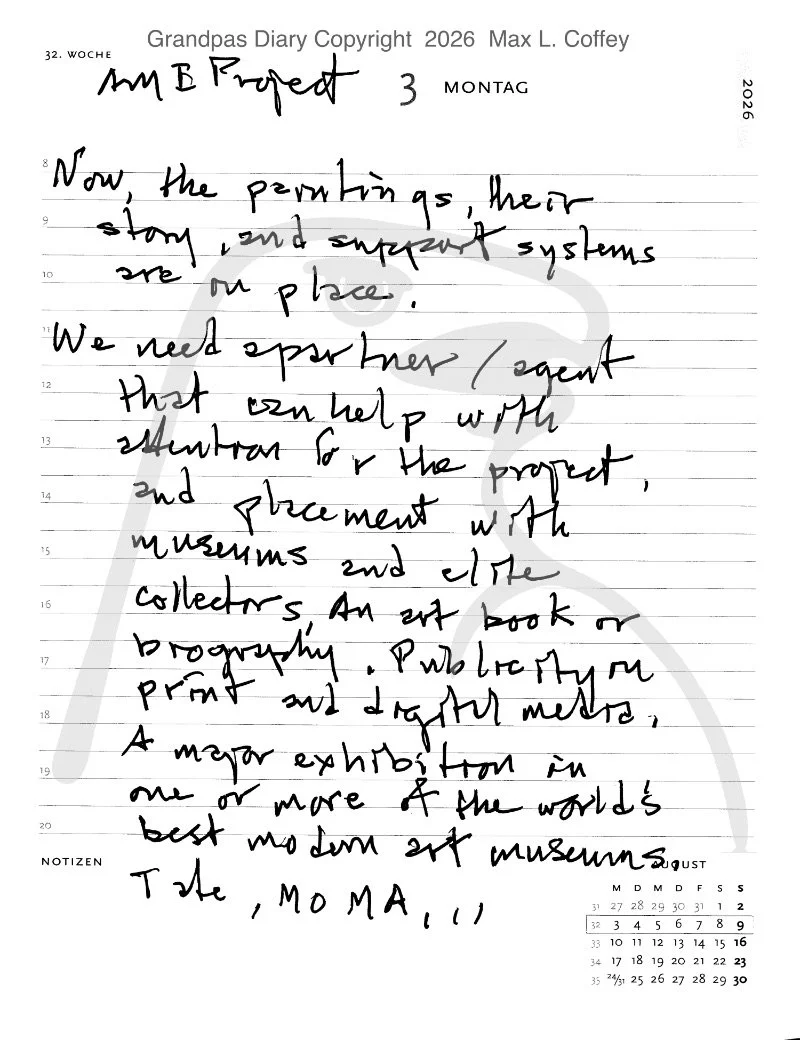 Grandpas Diary Copyright 2026 Max L. Coffey
32. WOCHE
AME Project 3 MONTAG
2026
8
Now, the paintings, their
9
story, and support systems
10
are in place.
11
We need a partner / agent
12
that can help with
13
attention for the project,
14
and placement with
museums and elite
15
16
collectors, An art book or
17
biography. Publicity in
print and digital media,
18
A major exhibition in
19
one or more of the world's
20
best modern art museums,
NOTIZEN
AUGUST
Tate, MOMA, , ,
M D M D F S S
31 27 28 29 30 31 1 2
32 3 4 5 6 7 8 9
33 10 11 12 13 14 15 16
34 17 18 19 20 21 22 23
35 24/31 25 26 27 28 29 30